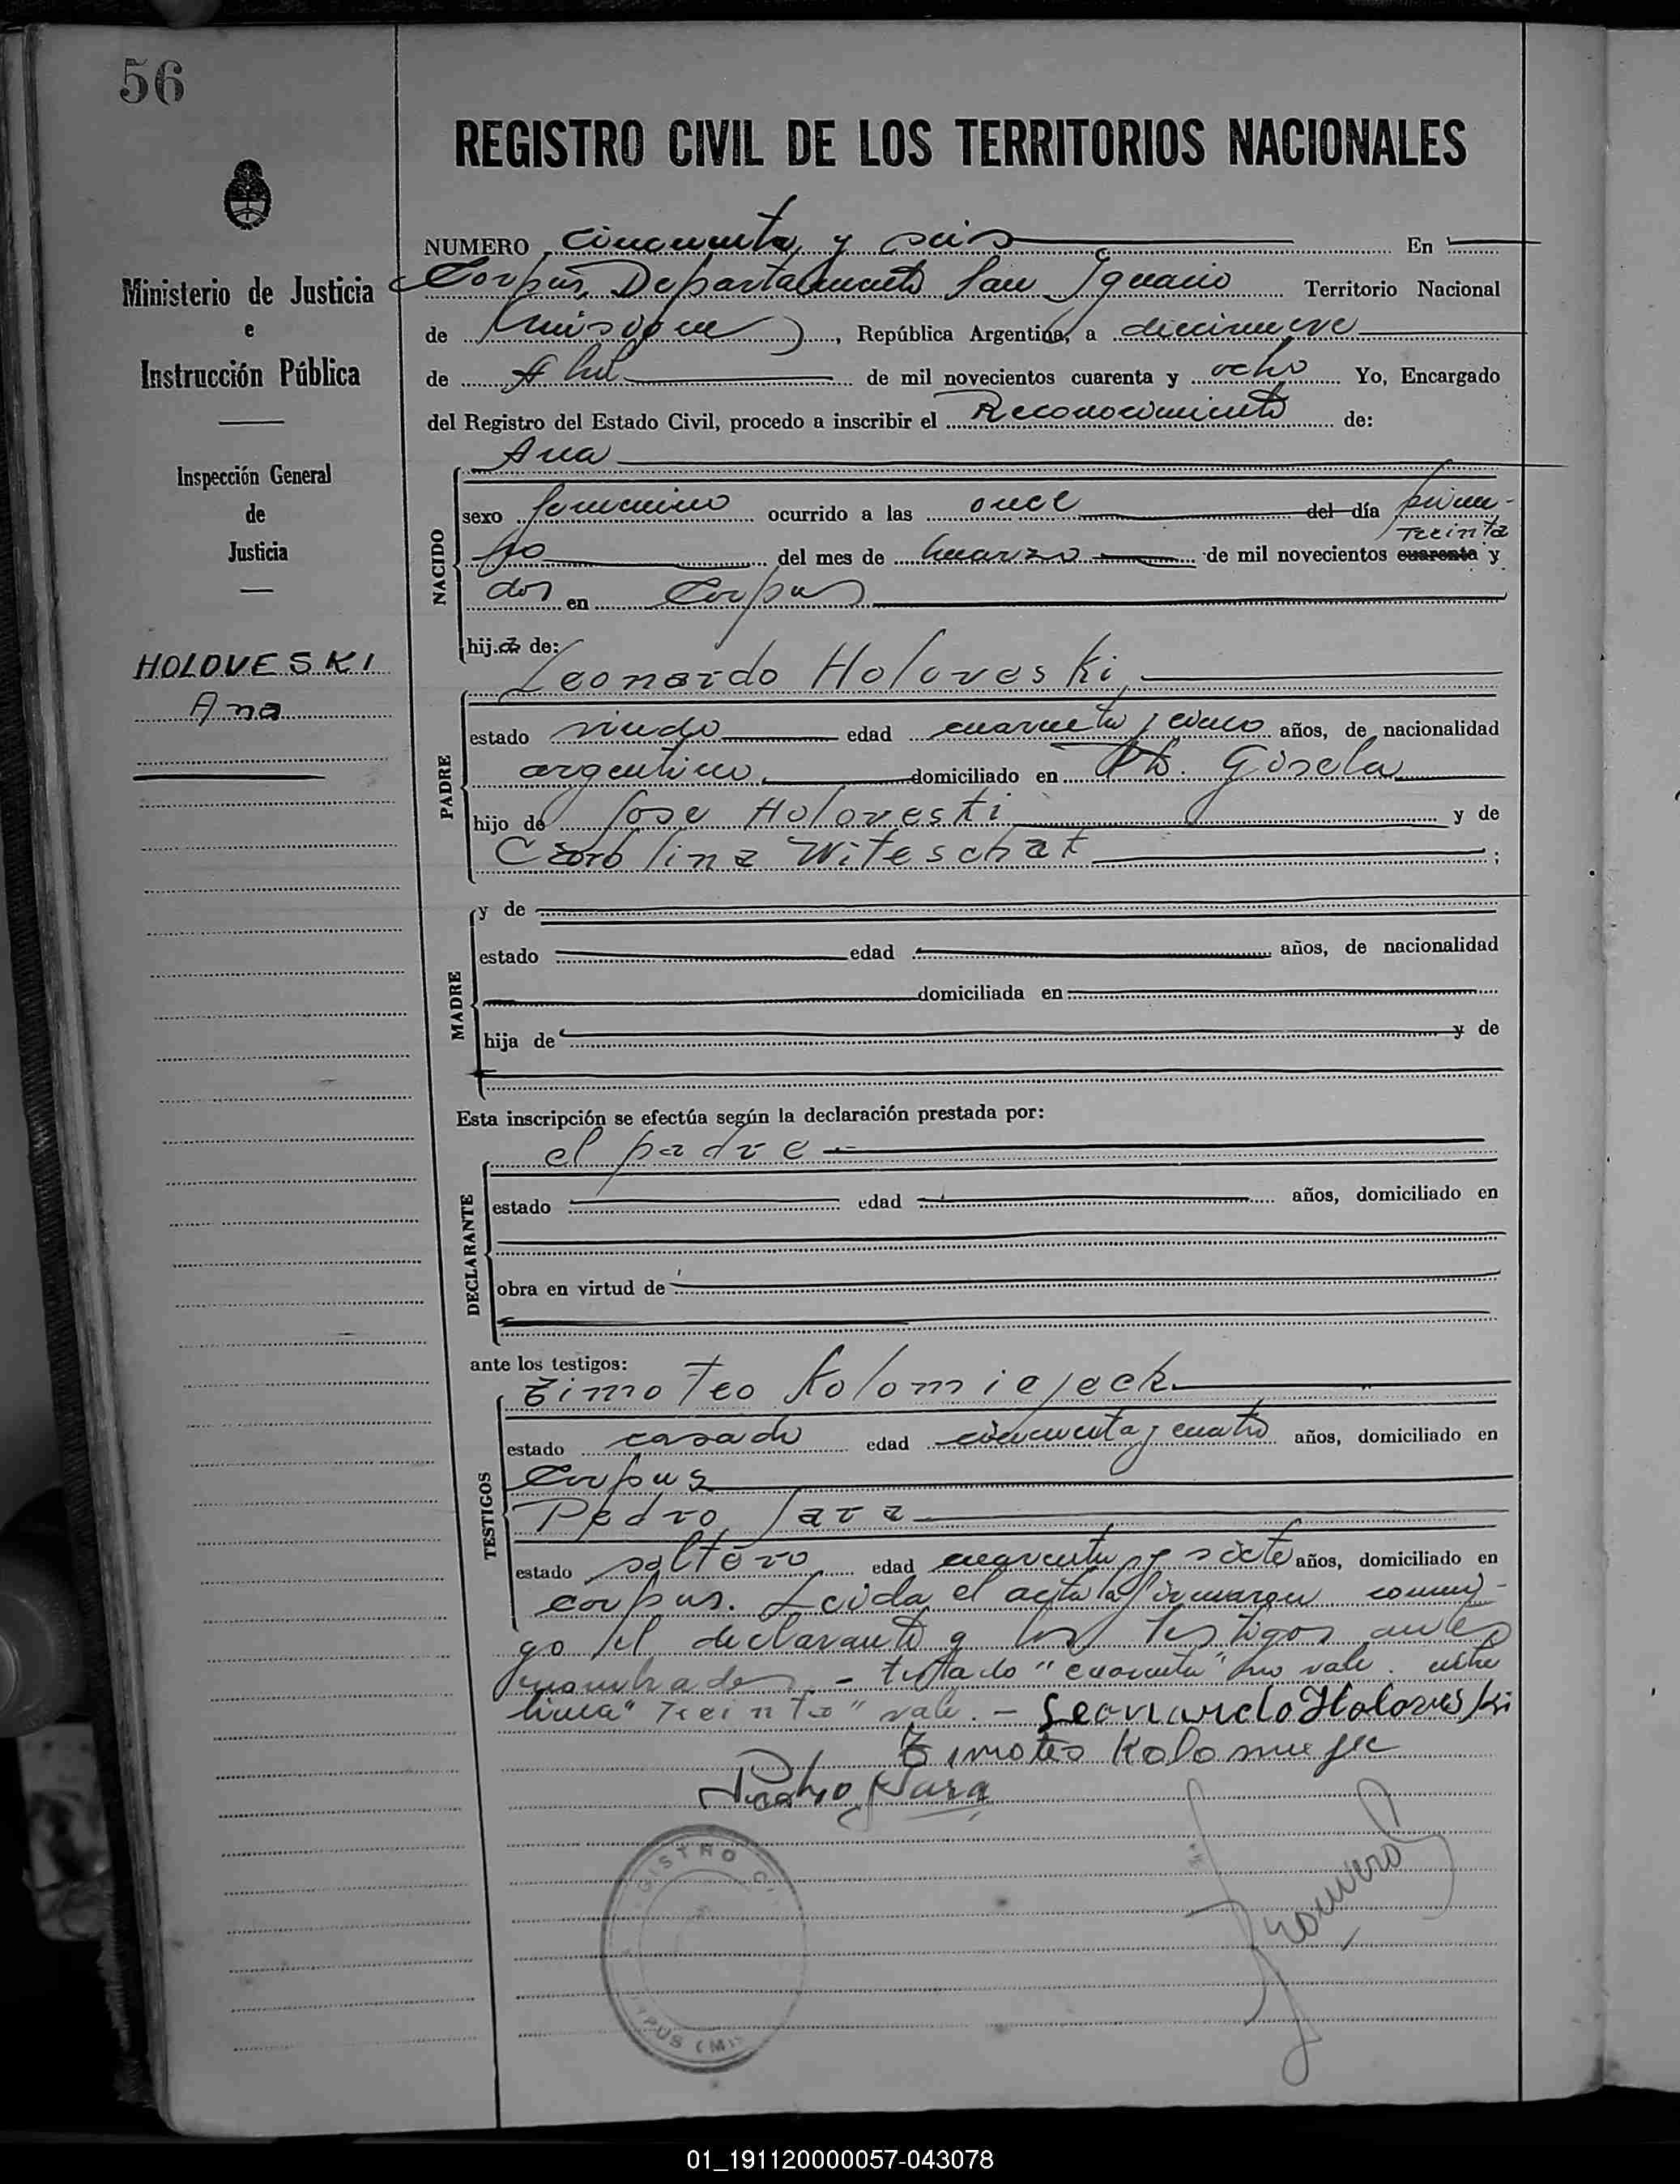 56
REGISTRO CIVIL DE LOS TERRITORIOS NACIONALES
Ministerio de Justicia
e
Instrucción Pública
Inspección General
de
Justicia
HOLOVESKI
Ana
NUMERO cincuenta y seis En
Corpus, Departamento San Ignacio Territorio Nacional
de Misiones, República Argentina, a diecinueve
de Abril de mil novecientos cuarenta y ocho Yo, Encargado
del Registro del Estado Civil, procedo a inscribir el Reconocimiento de:
Ana
NACIDO
sexo femenino ocurrido a las once del día prime-
treinta
ro del mes de marzo de mil novecientos cuarenta y
dos en Corpus
hija de:
Leonardo Holoveski,
PADRE
estado viudo edad cuarenta y cinco años, de nacionalidad
argentino, domiciliado en Pto. Gisela
hijo de Jose Holoveski y de
Carolina Witeschat ;
MADRE
y de
estado edad años, de nacionalidad
domiciliada en
hija de y de
Esta inscripción se efectúa según la declaración prestada por:
el padre
DECLARANTE
estado edad años, domiciliado en
obra en virtud de
ante los testigos:
TESTIGOS
Timoteo Kolomiejeck
estado casado edad cincuenta y cuatro años, domiciliado en
Corpus
Pedro Jara
estado soltero edad cuarenta y siete años, domiciliado en
corpus. Leida el acta la firmaron conmi-
go el declarante y los testigos antes
nombrados. - testado "cuarenta" no vale. entre
linea "Treinta" vale. - Leonardo Holoveski
Timoteo
Pedro Jara
GISTRO C
PUS (MI
01_191120000057-043078